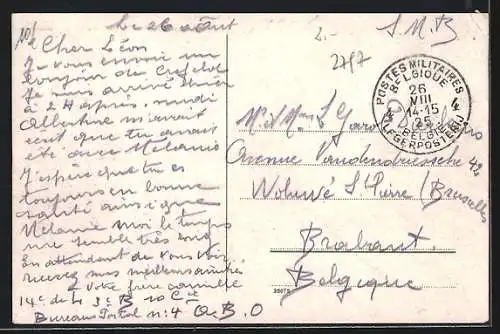 Le 26 août
Cher Léon
Je vous envoi un
bonjour de Crefeld
Je suis arrivé hier
à 24 après midi
Albertine m'avait
écrit que tu avait
été avec Mélanie
J'espère que tu es
toujours en bonne
santé ainsi que
Mélanie moi le temps
me semble très long
En attendant de vous voir
recevez mes meilleurs amitiés
Votre frère Camille
14e de L 3e B 10 Cie
Bureau Postal n: 4 A. B. O
S. M. B
2.-
2717
POSTES MILITAIRES
BELGIQUE
26
VIII
14-15
25
BELGIË
LEGERPOSTERIJ
4 4
Mr et Mme L Garo
Avenue Vandendriessche 42
Woluwé St Pierre (Bruxelles
Brabant.
Belgique